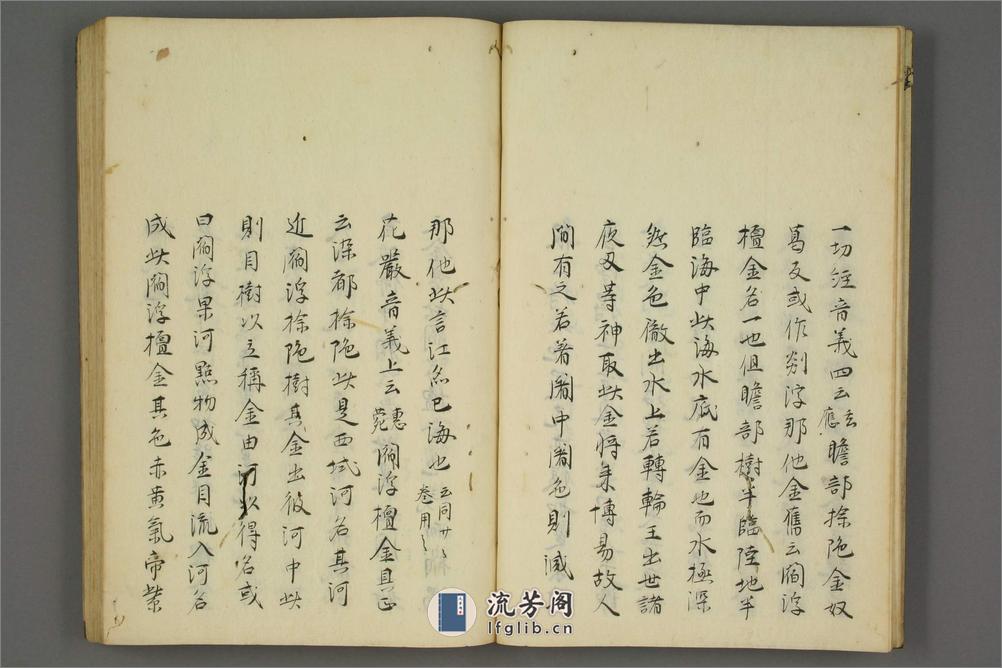 一切経音義四云玄應瞻部捺陁金奴
葛反或作剡浮那他金舊云閻浮
檀金名一也但瞻部樹半臨陸地半
臨海中此海水底有金也而水極深
然金色徹出水上若轉輪王出世諸
夜叉等神取此金将来博易故人
間有之若著闇中闇色則滅
那他此言江名巴海也
花嚴音義上云惠菀閻浮檀金具正
云染都捺陁此是西域河名其河
近閻浮捺陁樹其金出彼河中此
則目樹以立稱金由河以得名或
曰閻浮果河點物成金目流入河名
成此閻浮檀金其色赤黄氣帯紫
流芳阁
lfglib.cn